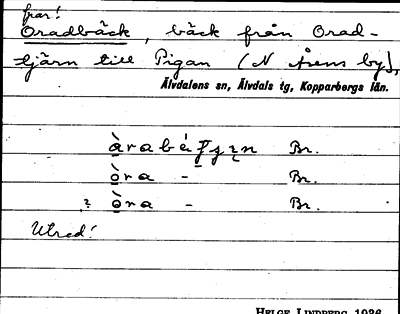 frar!
Oradbäck, bäck från Orad-
tjärn till Pigan (N Åsens by),
Älvdalens sn, Älvdals tg, Kopparbergs län.
Br.
òra - Br.
? òra - Br.
Utred!
HELGE LINDBERG 1936